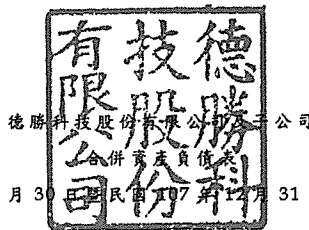 德勝科
技股份
有限公司
德勝科技股份有限公司及子公司
合併資產負債表
月 30 日暨民國 107 年 12 月 31